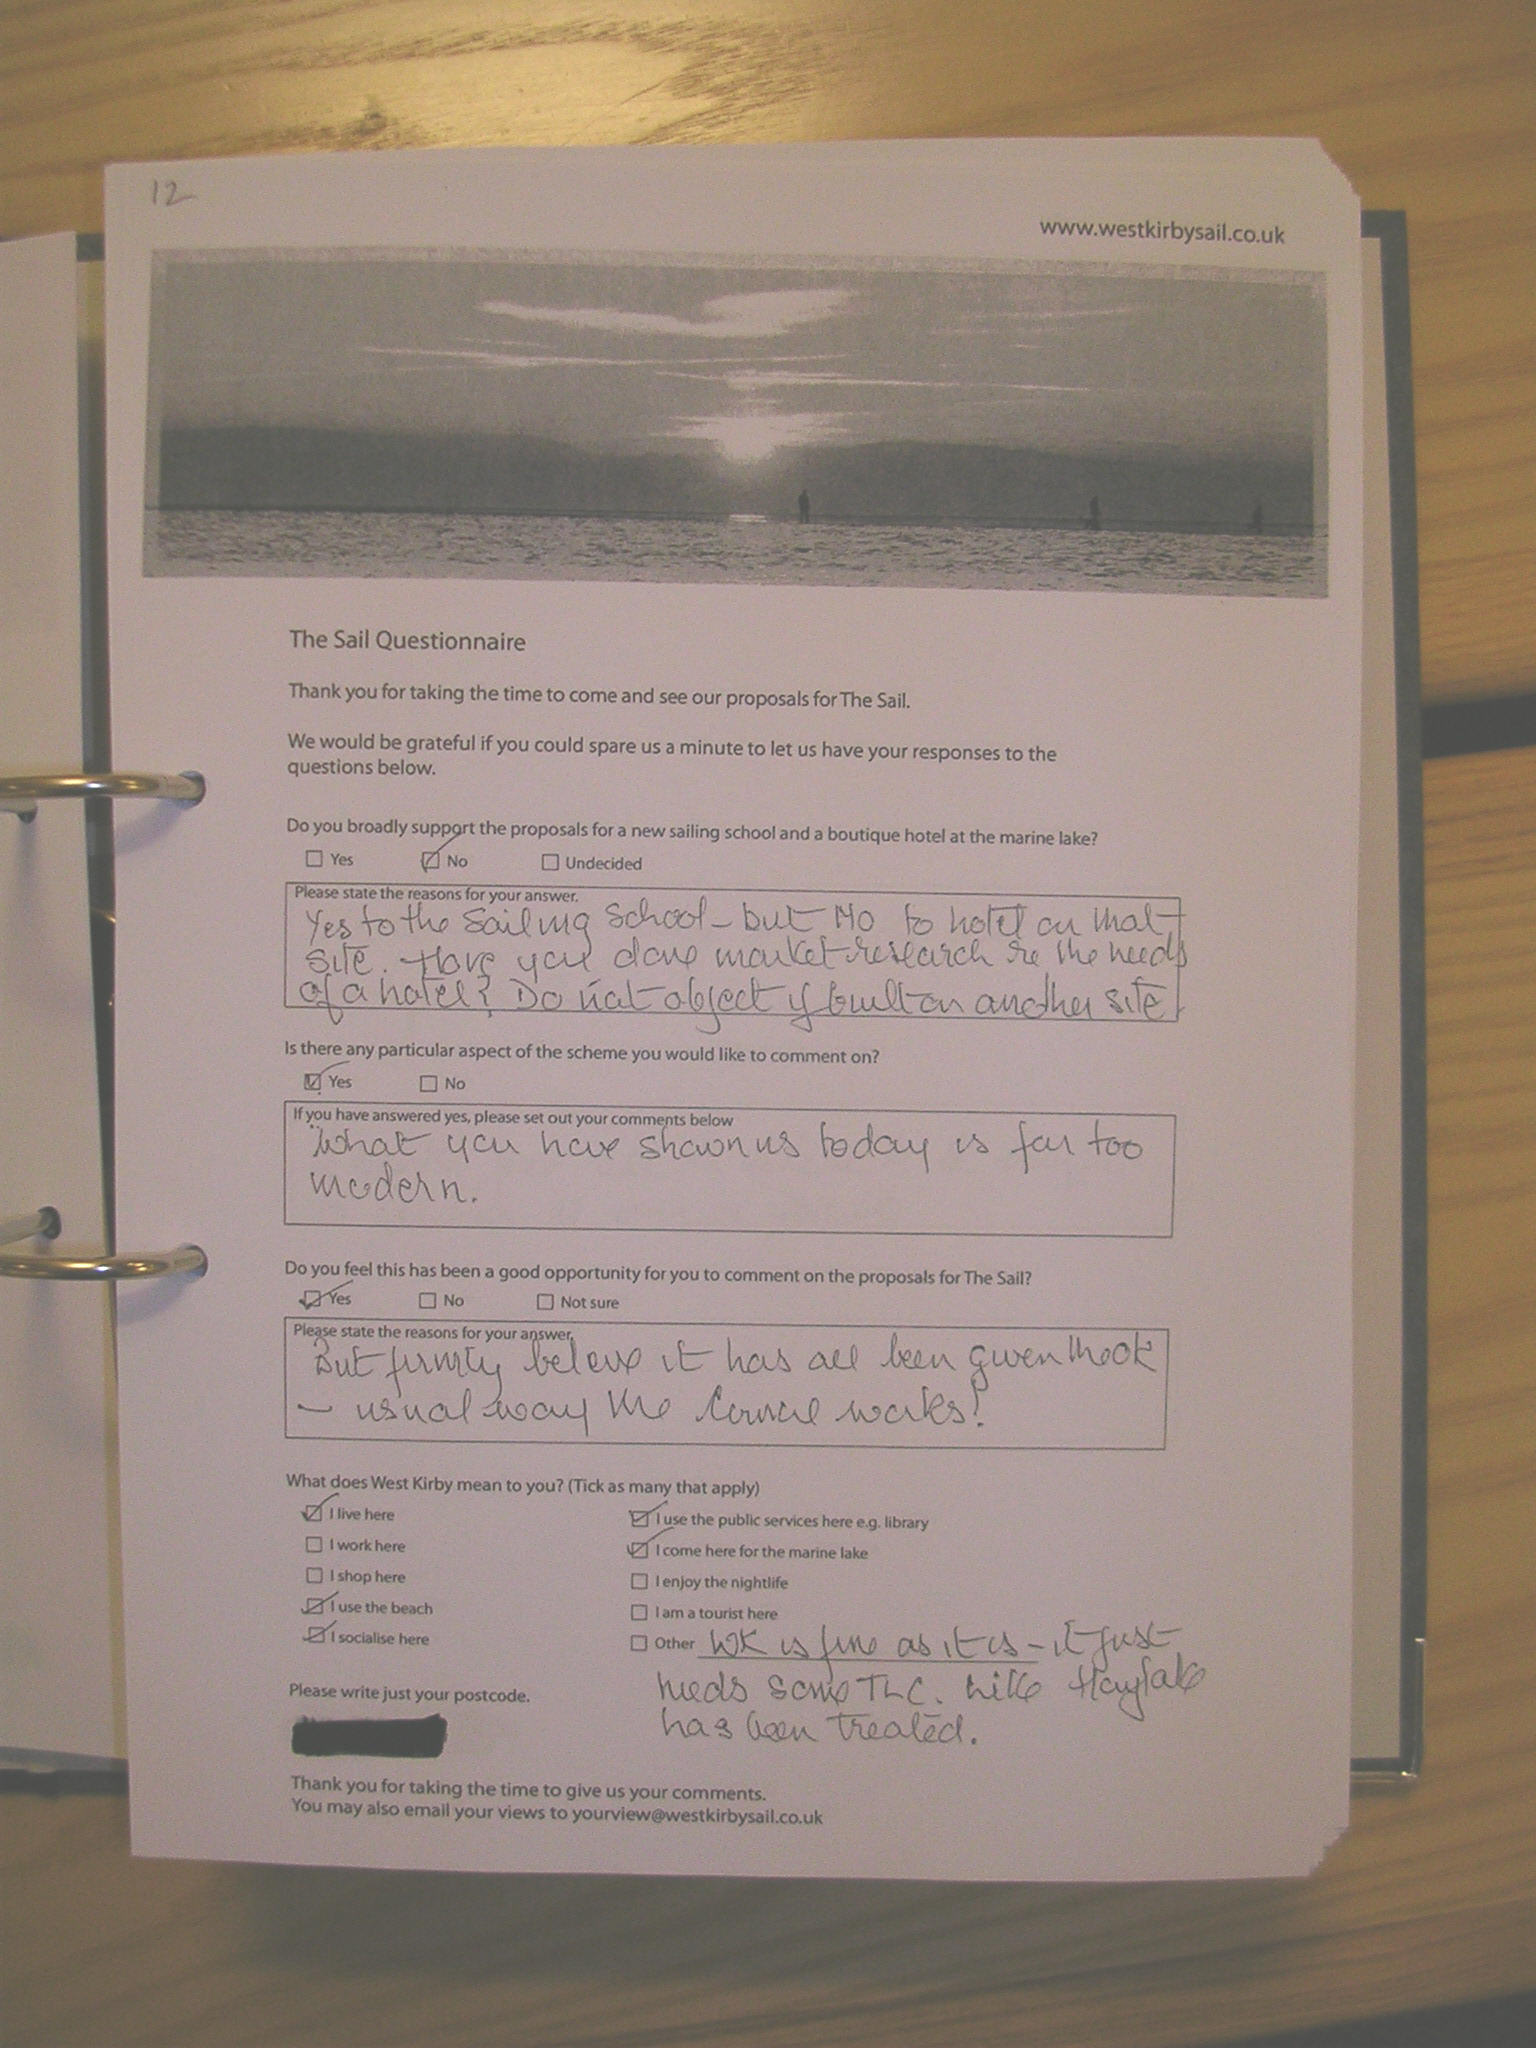 12
www.westkirbysail.co.uk
The Sail Questionnaire
Thank you for taking the time to come and see our proposals for The Sail.
We would be grateful if you could spare us a minute to let us have your responses to the
questions below.
Do you broadly support the proposals for a new sailing school and a boutique hotel at the marine lake?
Yes No Undecided
Please state the reasons for your answer.
Yes to the Sailing School - but NO to hotel on that
site. Have you done market research re the needs
of a hotel? Do not object if built on another site
Is there any particular aspect of the scheme you would like to comment on?
Yes No
If you have answered yes, please set out your comments below
What you have shown us today is far too
modern.
Do you feel this has been a good opportunity for you to comment on the proposals for The Sail?
Yes No Not sure
Please state the reasons for your answer.
But firmly believe it has all been given the OK
- usual way the Council works!
What does West Kirby mean to you? (Tick as many that apply)
I live here I use the public services here e.g. library
I work here I come here for the marine lake
I shop here I enjoy the nightlife
I use the beach I am a tourist here
I socialise here Other WK is fine as it is - it just
needs some TLC. Like Hoylake
has been treated.
Please write just your postcode.
Thank you for taking the time to give us your comments.
You may also email your views to yourview@westkirbysail.co.uk